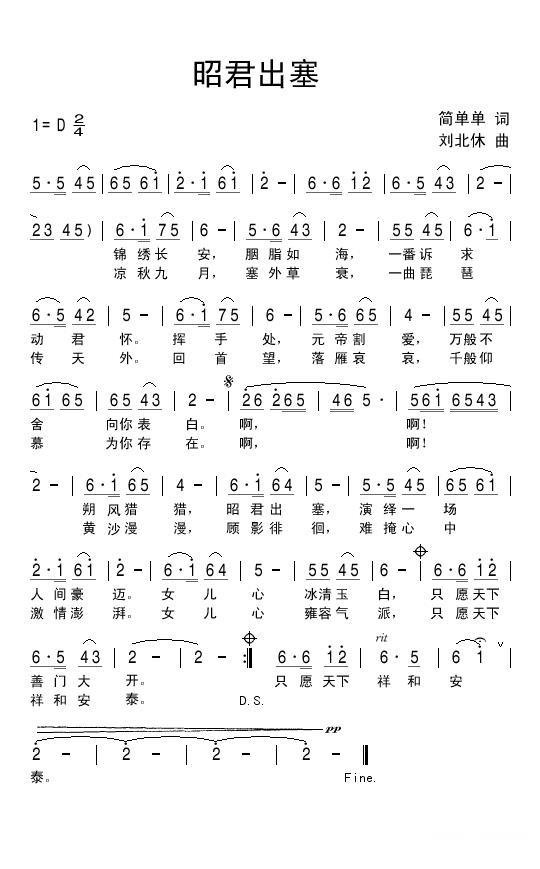 昭君出塞
1= D 2/4
简单单 词
刘北休 曲
5·5 45 | 65 61 | 2·1 61 | 2 - | 6·6 12 | 6·5 43 | 2 - |
23 45) | 6·1 75 | 6 - | 5·6 43 | 2 - | 55 45 | 6·1 |
锦 绣 长 安， 胭 脂 如 海， 一 番 诉 求
凉 秋 九 月， 塞 外 草 衰， 一 曲 琵 琶
6·5 42 | 5 - | 6·1 75 | 6 - | 5·6 65 | 4 - | 55 45 |
动 君 怀。 挥 手 处， 元 帝 割 爱， 万般 不
传 天 外。 回 首 望， 落 雁 哀 哀， 千般 仰
61 65 | 65 43 | 2 - | 26 265 | 46 5· | 561 6543 |
舍 向你 表 白。 啊， 啊！
慕 为你 存 在。 啊， 啊！
2 - | 6·1 65 | 4 - | 6·1 64 | 5 - | 5·5 45 | 65 61 |
朔 风 猎 猎， 昭 君 出 塞， 演 绎 一 场
黄 沙 漫 漫， 顾 影 徘 徊， 难 掩 心 中
2·1 61 | 2 - | 6·1 64 | 5 - | 55 45 | 6 - | 6·6 12 |
人 间 豪 迈。 女 儿 心 冰清 玉 白， 只 愿 天下
激 情 澎 湃。 女 儿 心 雍容 气 派， 只 愿 天下
rit
6·5 43 | 2 - | 2 - :| 6·6 12 | 6·5 | 6 1 ∨ |
善 门 大 开。 只 愿 天下 祥 和 安
祥 和 安 泰。 D.S.
pp
2 - | 2 - | 2 - | 2 - |
泰。 Fine.